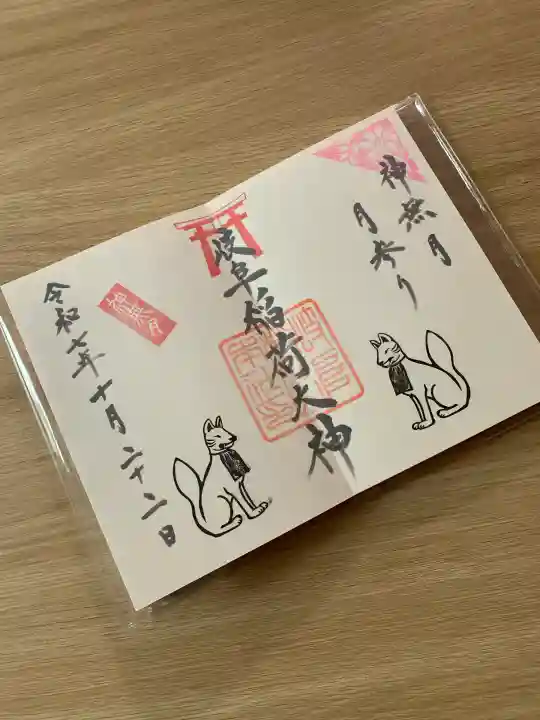 神無月
月参り
岐阜稲荷大神
神無月
令和七年十月二十二日